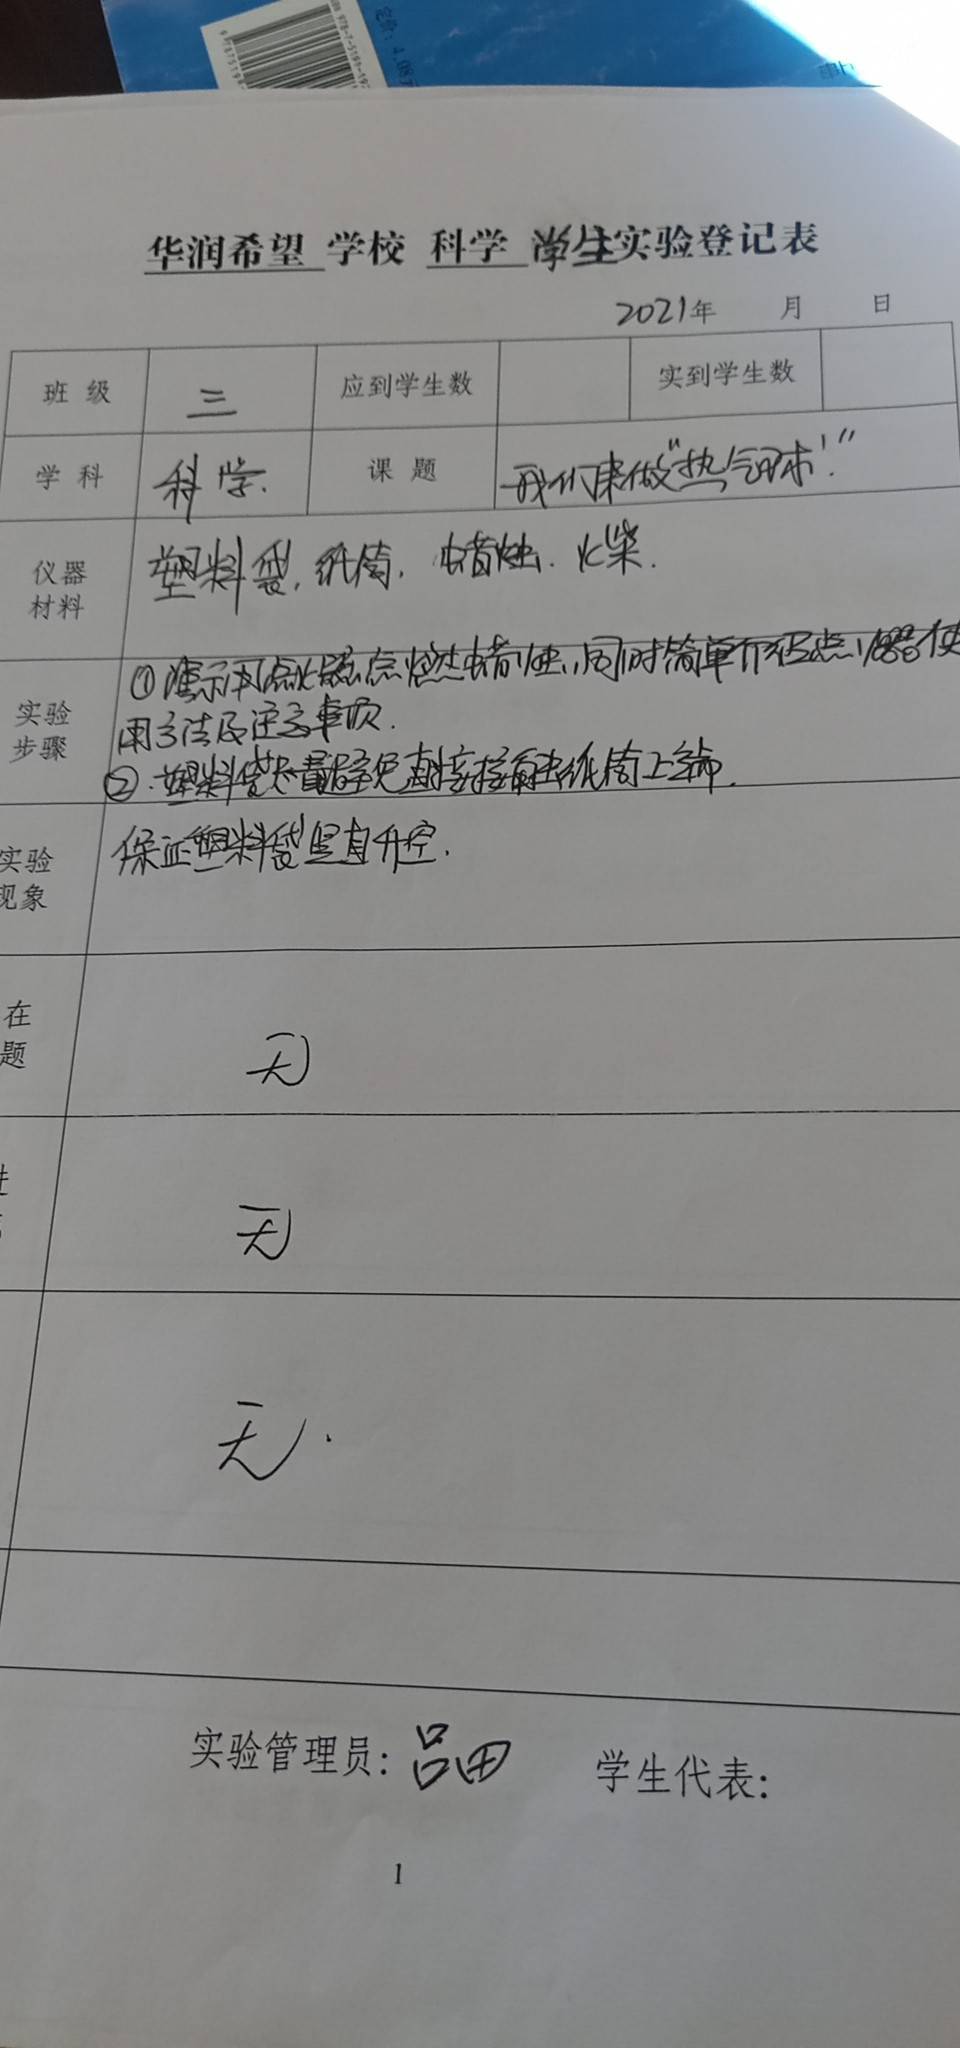 定价：4.08元
华润希望 学校 科学 学生实验登记表
2021年 月 日
班级 三 应到学生数 实到学生数
学科 科学. 课题 我们来做"热气球!"
仪器 塑料袋, 纸筒, 蜡烛. 火柴.
材料
实验 ①演示用点火器点燃蜡烛,同时简单介绍点火器使
步骤 用方法及注意事项.
②.塑料袋尽量避免直接接触纸筒上端.
实验 保证塑料袋竖直升空.
现象
在
题 无
无
无.
实验管理员: 吕田 学生代表:
1